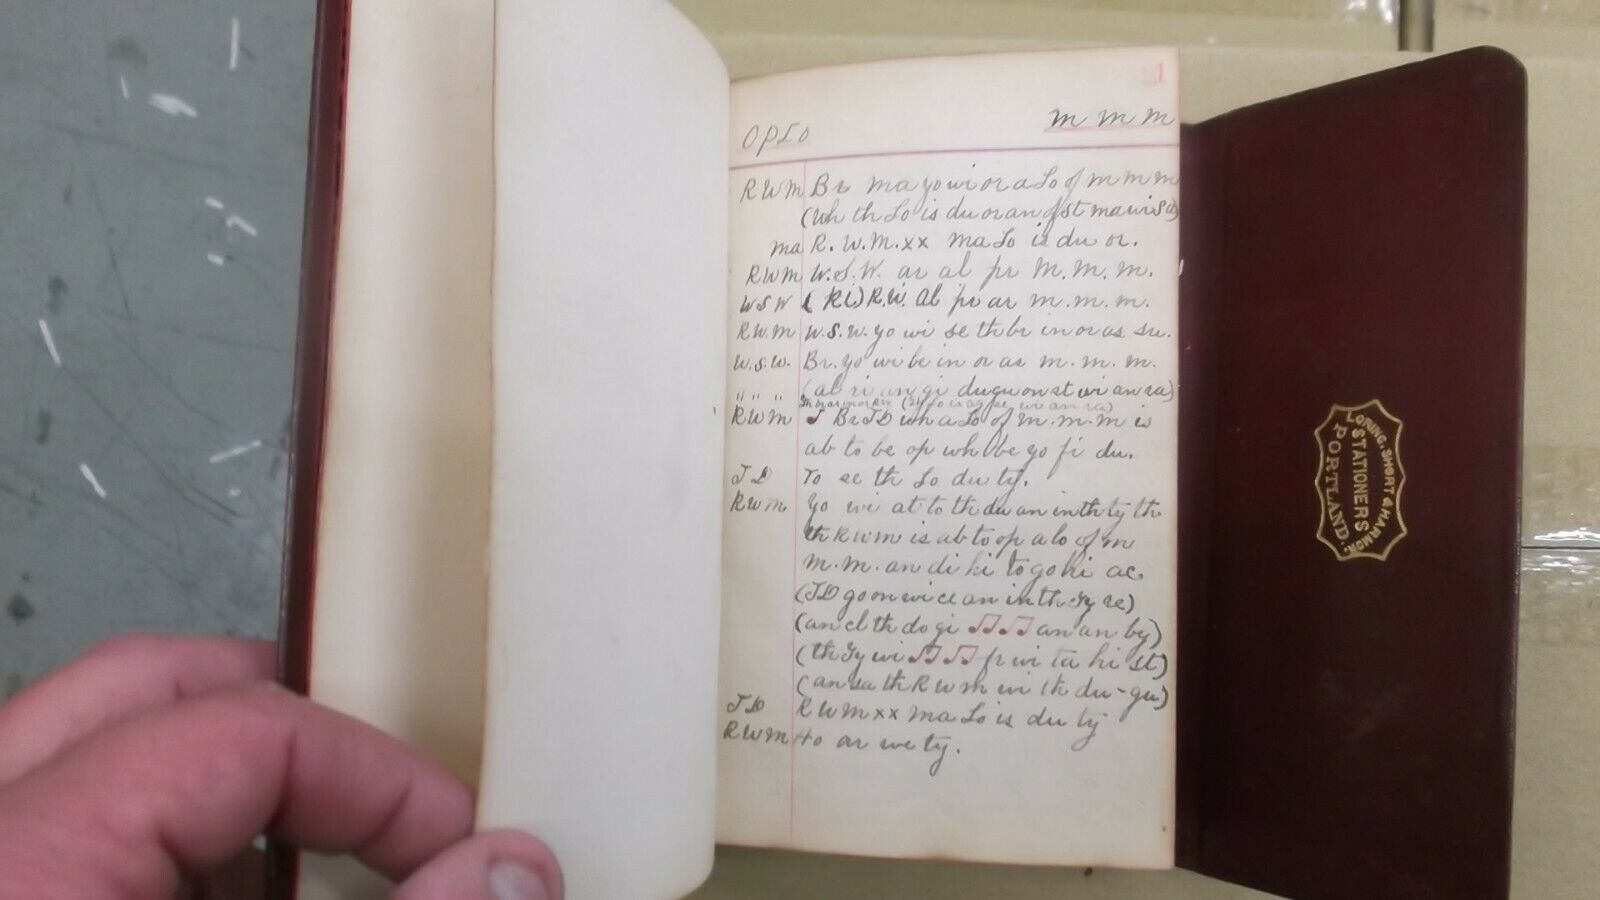 m m m
OPLO
R W M Br ma yo wi or a Lo of m m m
(Wh th Lo is du or an of st ma wi S
ma R. W. M. xx ma Lo is du or.
R W M W. S. W. ar al pr M. M. M.
W S W ( Ri) R.W. al pr ar m. m. m.
R. W. M W. S. W. yo wi se th br in or as su.
W. S. W. Br. yo wi be in or as m. m. m.
" " " (al ri an gi du gu on st wi an ra)
R W M Br J D wh a Lo of m. m. m is
ab to be op wh be yo fi du.
J D To se th Lo du ty.
R W M yo wi at to th du an in th ty th
th R W M is ab to op a lo of m
m. m. an di hi to go hi ac
(JD go on wi cl an in th Ty re)
(an cl th do gi ♫ ♫ an an by)
(th Ty wi ♫ ♫ pr wi ta hi st)
(an sa th R W M wi th du-gu)
J D R W M xx ma Lo is du ty
R W M Ho ar we ty.
LORING, SHORT & HARMON.
STATIONERS
PORTLAND.